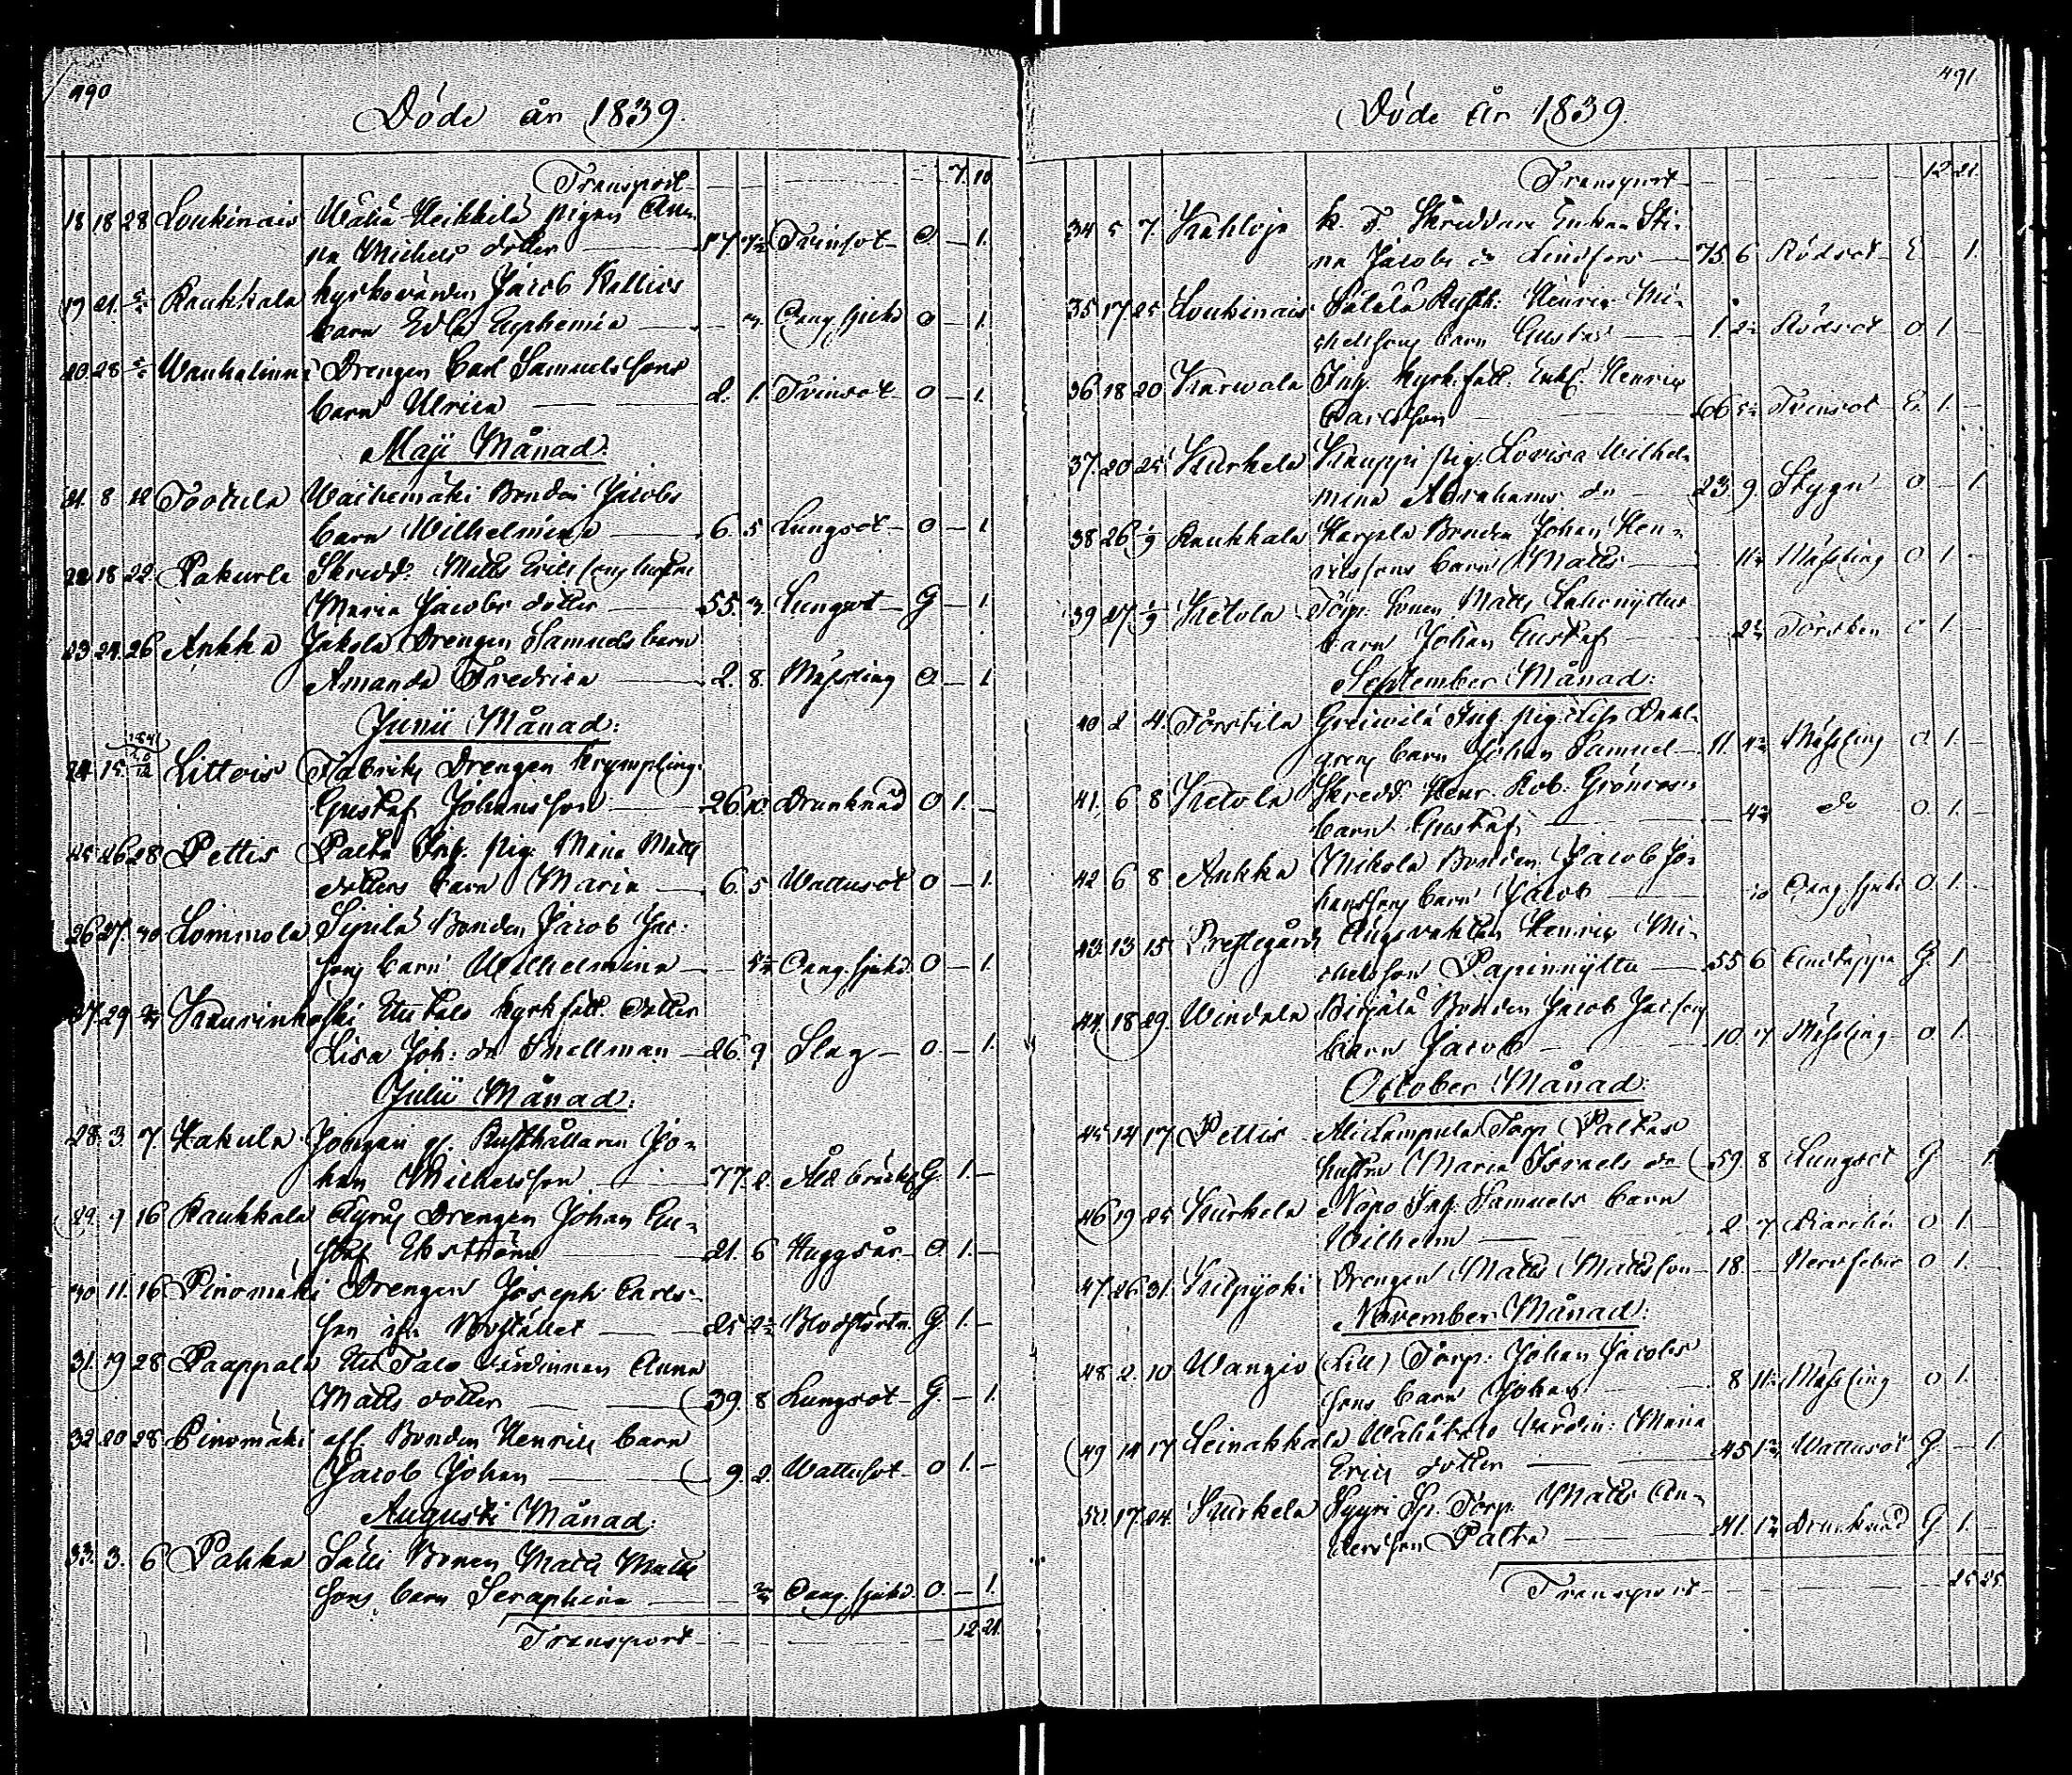 490
Döde år 1839.
Transport 7. 10
18 18 28 Loukinais Wäliä Heikkilä pigan An-
na Michels dotter 17. 7½ Tvinsot O. — 1.
19 21. Raukkala kyrkovärden Jacob Kallios
barn Edla Euphemia Oang. sjukd O — 1.
20. 28 Wanhalinna Drengen Carl Samuelssons
barn Ulrica 2. 1. Tvinsot O — 1.
Maji Månad:
21. 8 12 Tootula Waihemäki Bonden Jacobs
barn Wilhelmina 6. 5 Lungsot O — 1
22. 18 22. Pakurla Skredd: Matts Ericssons hustru
Maria Jacobs dotter 55. 3. Lungsot G — 1.
23. 24. 26 Aukka Jakola Drengen Samuels barn
Amanda Fredrica 2. 8. Mässling O. — 1
Junii Månad:
24. 15. Littois Fabriks Drengen Krympling
Gustaf Johansson 26. 10. Drunknad O 1. —
25 26 28 Pettis Palta Inh. pig. Mina Matts
dotters barn Maria 6. 5 Wattusot O — 1.
26 27. 30 Lommola Sipilä Bonden Jacob Jac:
sons barn Wilhelmina Oang. sjukd. O — 1.
27. 29 Kaurinkoski Uutalo kyrk fatt. dotter
Lisa Joh: dr Snellman 26. 9 Slag O. — 1.
Julii Månad:
28. 3. 7 Hakula Jungari gl. Rusthållaren Jo-
han Michelsson 77. 2. Åld. bräckl G. 1. —
29. 9 16 Raukkala Drengen Johan Gu-
staf Ekström 21. 6 Huggsår O. 1. —
30 11. 16 Pinomäki Drengen Joseph Carls-
son ifr Bostället 25 Blodstörtn. G. 1. —
31. 19 28 Paappala Uutalo värdinnan Anna
Matts dotter 39. 8 Lungsot G. — 1.
32. 20 28 Pinomäki afl. Bonden Henrics barn
Jacob Johan 9. 2. Wattusot O 1. —
Augusti Månad:
33. 3. 6 Pahka Sälli Bonden Matts Matts
sons barn Seraphina Oang. sjukd. O — 1.
Transport 12 21.
491.
Döde år 1839.
Transport 12 21.
34 5 7. Kahloja k. F. Skreddare Enkan Sti-
na Jacobs dr Lindfors 75. 6 Rödsot E — 1.
35 17 25 Loukinais Rusth. Henric Mi-
chelssons barn Gustaf 1. Rödsot O 1. —
36 18 20 Karwala Inh. kyrk fatt. Enkl. Henric
Carlsson 66 Tvinsot E. 1. —
37. 20 25 Kurkela Kauppi pig. Lovisa Wilhel-
mina Abrahams dr 23. 9. Stygn O — 1
38 26 1/9 Raukkala Karjala Bonden Johan Hen-
ricssons barn Matts Mässling O 1. —
39 27 1/9 Ketola Torp. Sonen Matts Lukonyttus
barn Johan Gustaf Torsken O 1. —
September Månad:
40 2 4. Torstila Greiwilä Inh. pig. Lisa Dahl-
grens barn Johan Samuel 11. Mässling O. 1. —
41. 6 8 Ketola Skredd Henr. Rob. Grönroos
barn Gustaf do O. 1. —
42 6 8 Aukka Mikola Bonden Jacob Jo-
hanssons barn Jacob 10 Oang. sjukd O. 1. —
43. 13 15. Prestegården Ängsvakten Henric Mi-
chelsson Papinnyttu 55 6 Andtäppa G. 1 —
44. 18 29. Windala Birjälä Bonden Jacob Jacssons
barn Jacob 10 7 Mässling O. 1. —
October Månad:
45 14 17 Pettis Alidampula Torp Paltas
hustru Maria Israels dr 59 8 Lungsot G — 1.
46 19 25 Kurkela Nopo Inh. Samuels barn
Wilhelm 2 7 Diarrhé O 1. —
47. 26 31. Kilpijoki Drengen Matts Mattsson 18. Nervfeber O 1. —
November Månad:
48 2. 10 Wangio (Lill) Torp. Johan Jacobs
sons barn Johan 8 Mässling O 1. —
49 14 17 Leinakkala Wähätalo värdin: Maria
Erics dotter 45 Wattusot G — 1.
50. 17. 24. Kurkela Syyri Torp. Matts An-
dersson Palta 41. Drunknad G 1. —
Transport 25 25.